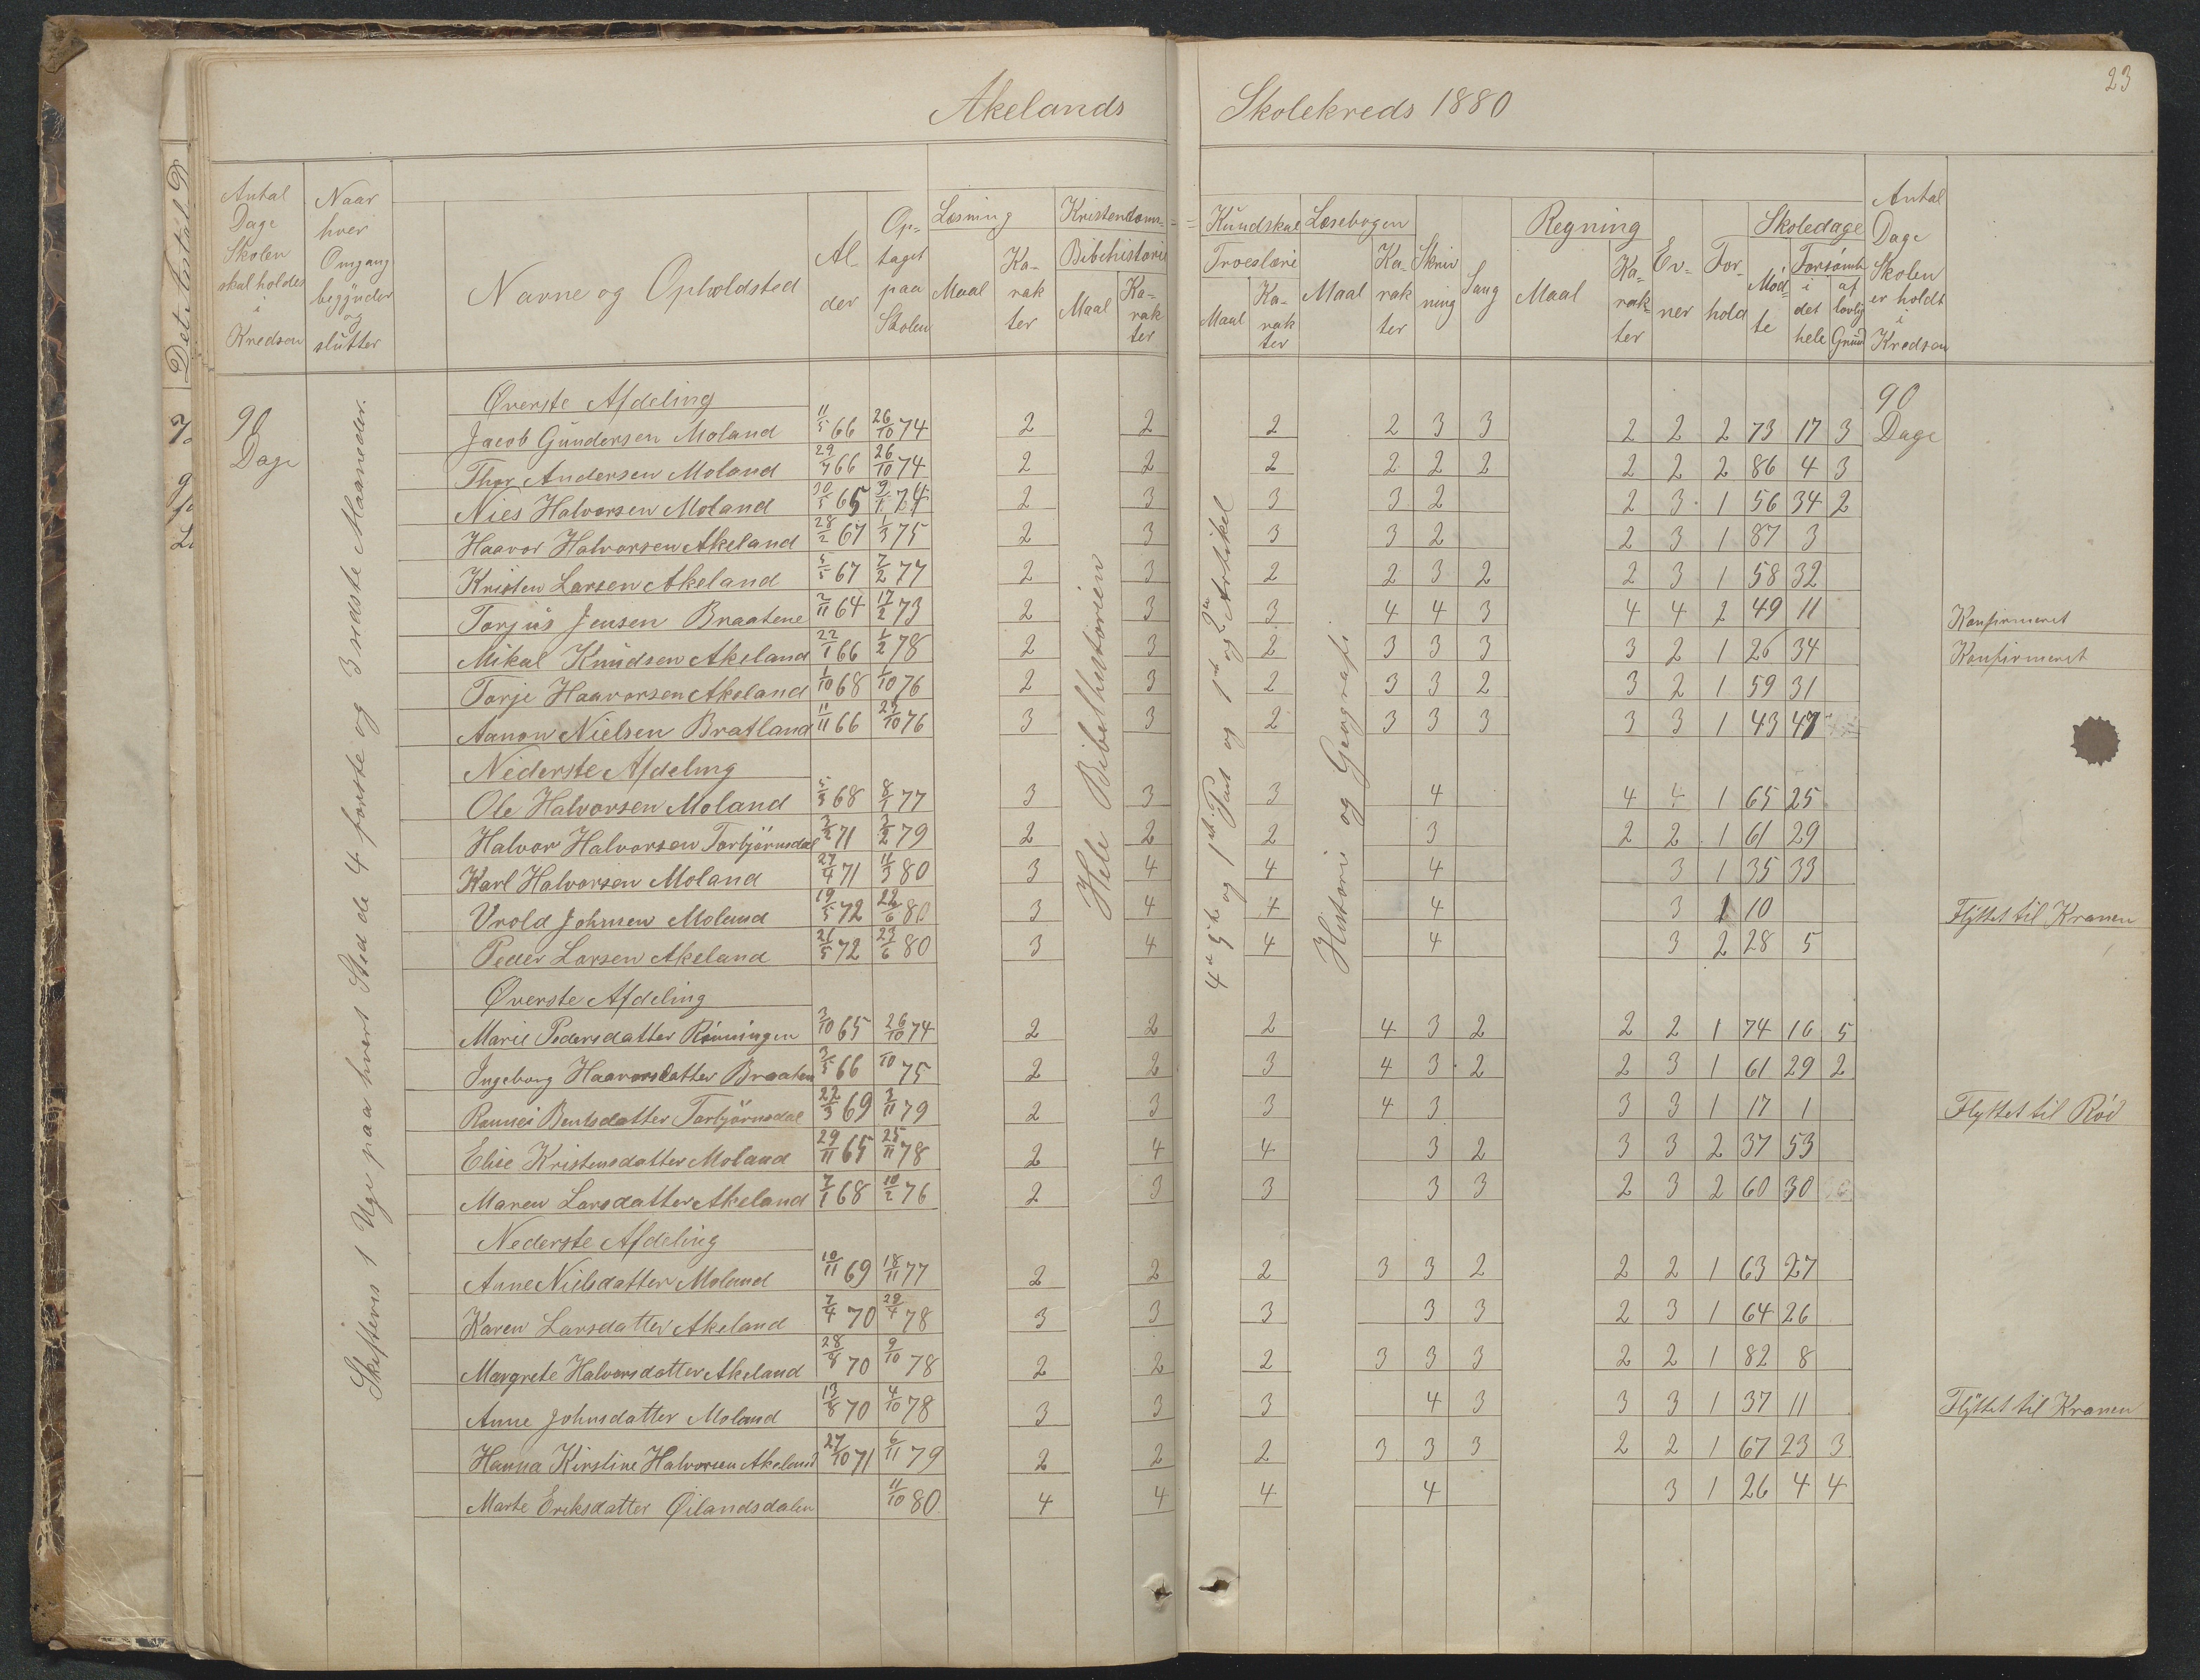 23
Akelands Skolekreds 1880
Antal Dage Skolen skal holdes i Kredsen
Naar hver Omgang begynder og slutter
Navne og Opholdsted
Al-der
Op-taget paa Skolen
Læsning
Maal
Ka-rak ter
Kristendoms-
Bibelhistorie
Maal
Ka-rak ter
Kundskab
Troeslære
Maal
Ka-rak ter
Læsebogen
Maal
Ka-rak ter
Skriv ning
Sang
Regning
Maal
Ka-rak-ter
Ev-ner
For-hold
Skoledage
Mød-te
Forsømte
i det hele
af lovlig Grund
Antal Dage Skolen er holdt i Kredsen
90 Dage
Skiftevis 1 Uge paa hvert Sted de 4 første og 3 sidste Maaneder.
Hele Bibelhistorien
4de 5te og 1ste Part og 1ste og 2den Artikel
Historie og Geografi
90 Dage
Øverste Afdeling
Jacob Gundersen Moland 11/5 66 26/10 74 2 2 2 2 3 3 2 2 2 73 17 3
Thor Andersen Moland 29/7 66 26/10 74 2 2 2 2 2 2 2 2 2 86 4 3
Niels Halvorsen Moland 30/5 65 9/1 74 2 3 3 3 2 2 3 1 56 34 2
Haavor Halvorsen Akeland 28/2 67 1/3 75 2 3 3 3 2 2 3 1 87 3
Kristen Larsen Akeland 5/5 67 7/2 77 2 3 2 2 3 2 2 3 1 58 32
Torjus Jensen Braatene 2/11 64 17/2 73 2 3 3 4 4 3 4 4 2 49 11 Konfirmeret
Mikal Knudsen Akeland 22/1 66 1/2 78 2 3 2 3 3 3 3 2 1 26 34 Konfirmeret
Torje Haavorsen Akeland 1/10 68 1/10 76 2 3 2 3 3 2 3 2 1 59 31
Aanon Nielsen Bratland 11/11 66 25/10 76 3 3 2 3 3 3 3 3 1 43 47
Nederste Afdeling
Ole Halvorsen Moland 5/3 68 8/1 77 3 3 3 4 4 4 1 65 25
Halvor Halvorsen Torbjörnsdal 3/2 71 3/2 79 2 2 2 3 2 2 1 61 29
Karl Halvorsen Moland 27/4 71 11/3 80 3 4 4 4 3 1 35 33
Vrold Johnsen Moland 19/5 72 22/6 80 3 4 4 4 3 1 10 Flyttet til Kranen
Peder Larsen Akeland 21/5 72 23/6 80 3 4 4 4 3 2 28 5
Øverste Afdeling
Marie Pedersdatter Rönningen 3/10 65 26/10 74 2 2 2 4 3 2 2 2 1 74 16 5
Ingeborg Haavorsdatter Braaten 3/5 66 10 75 2 2 3 4 3 2 2 3 1 61 29 2
Ronnei Bentsdatter Torbjörnsdal 22/3 69 3/11 79 2 3 3 4 3 3 3 1 17 1 Flyttet til Röd
Elise Kristensdatter Moland 29/11 65 25/11 78 2 4 4 3 2 3 3 2 37 53
Maren Larsdatter Akeland 7/1 68 10/2 76 2 3 3 3 3 2 3 2 60 30
Nederste Afdeling
Anne Nielsdatter Moland 10/11 69 18/11 77 2 2 2 3 3 2 2 2 1 63 27
Karen Larsdatter Akeland 7/4 70 29/4 78 3 3 3 3 3 2 3 1 64 26
Margrete Halvorsdatter Akeland 28/8 70 9/10 78 2 2 2 3 3 3 2 2 1 82 8
Anne Johnsdatter Moland 13/8 70 4/10 78 3 3 3 4 3 3 3 1 37 11 Flyttet til Kranen
Hanna Kirstine Halvorsen Akeland 27/10 71 6/11 79 2 2 2 3 3 3 2 2 1 67 23 3
Marte Eriksdatter Øilandsdalen 11/10 80 4 4 4 4 3 1 26 4 4